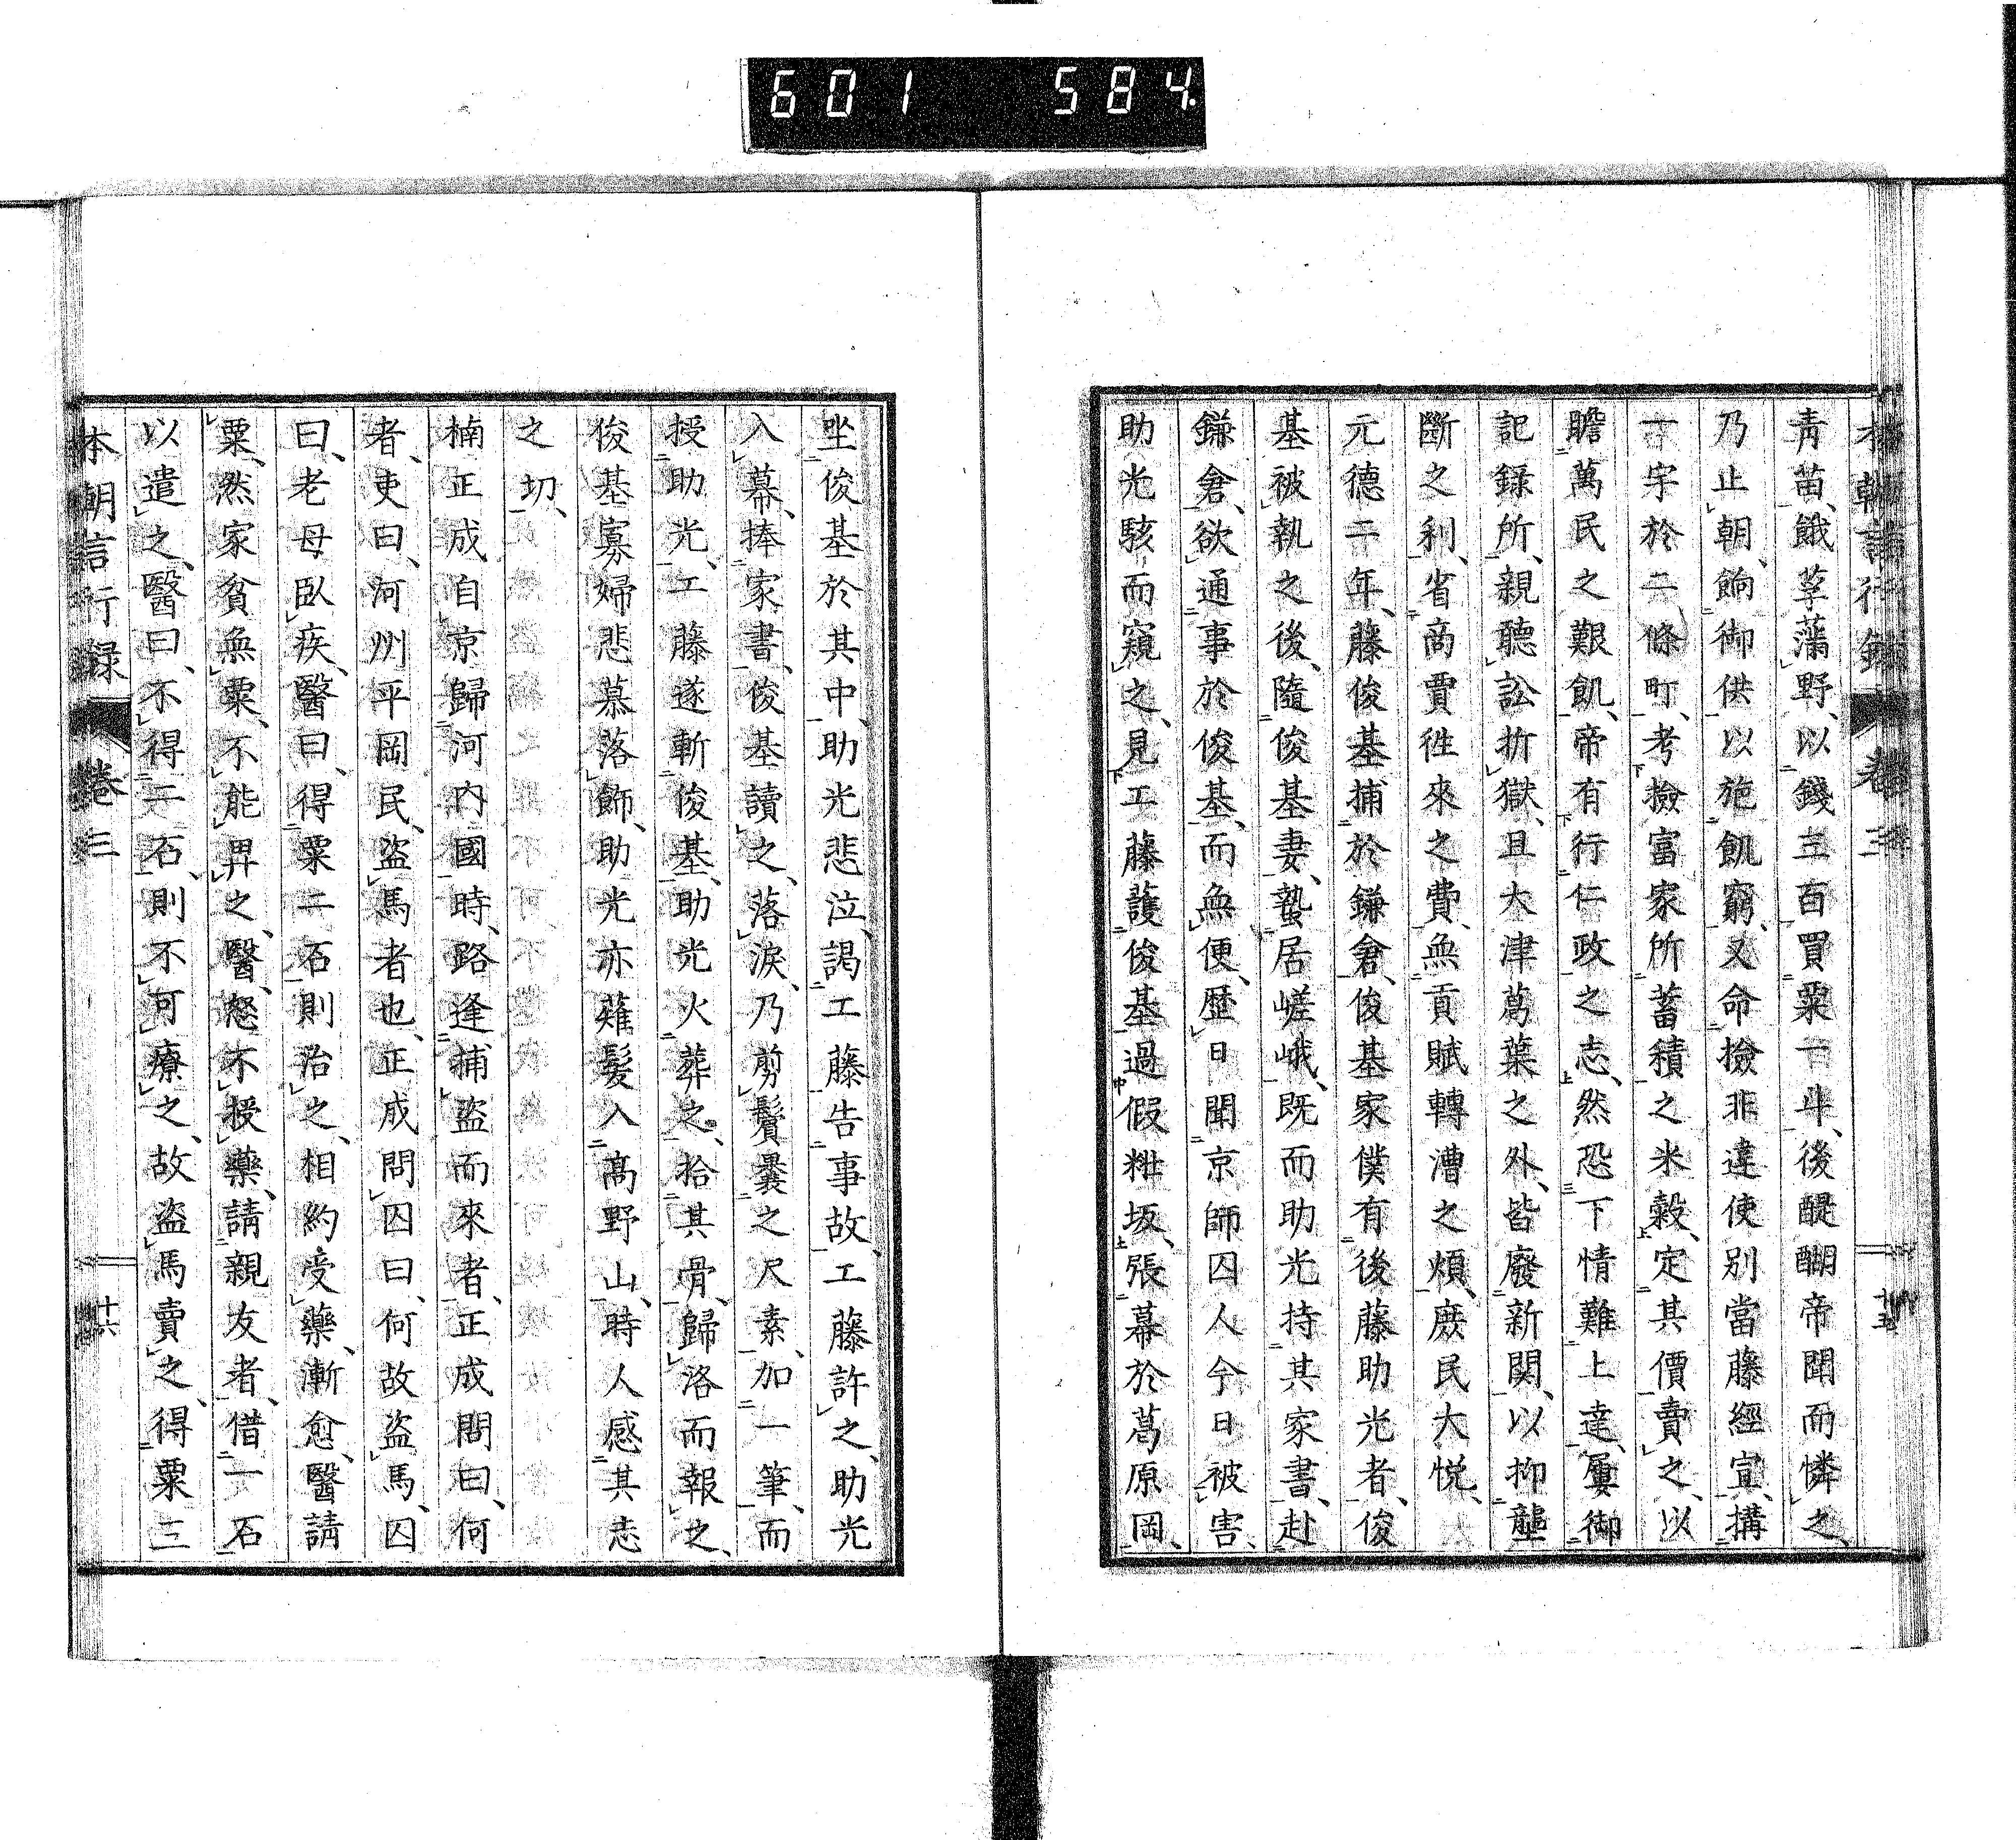 601 584
本朝言行錄 卷三 十五
青苗、餓莩蒲野、以錢三百買粟一斗、後醍醐帝聞而憐之、
乃止朝餉御供以施飢窮、又命撿非違使別當藤經宣、搆
一宇於二條町、考撿富家所蓄積之米穀、定其價賣之、以
贍萬民之艱飢、帝有行仁政之志、然恐下情難上達、屢御
記錄所、親聽訟折獄、且大津葛葉之外、皆廢新関、以抑壟
斷之利、省商賈徃來之費、無貢賦轉漕之煩、庶民大悅、
元德二年、藤俊基捕於鎌倉、俊基家僕有後藤助光者、俊
基被執之後、隨俊基妻、蟄居嵯峨、既而助光持其家書、赴
鎌倉、欲通事於俊基、而無便、歷日聞京師囚人今日被害、
助光駭而窺之、見工藤護俊基過假粧坂、張幕於葛原岡、
坐俊基於其中、助光悲泣、謁工藤告事故、工藤許之、助光
入幕、捧家書、俊基讀之、落淚、乃剪鬢裹之尺素、加一筆、而
授助光、工藤遂斬俊基、助光火葬之、拾其骨、歸洛而報之、
俊基寡婦悲慕落飾、助光亦薙髮入高野山、時人感其志
之切、
楠正成、自京歸河內國時、路逢捕盜而來者、正成問曰、何
者、吏曰、河州平岡民、盜馬者也、正成問囚曰、何故盜馬、囚
曰、老母臥疾、醫曰、得粟二石則治之、相約受藥、漸愈、醫請
粟、然家貧無粟、不能畀之、醫怒不授藥、請親友者、借一石
以遣之、醫曰、不得二石、則不可療之、故盜馬賣之、得粟三
本朝言行録 卷三 十六